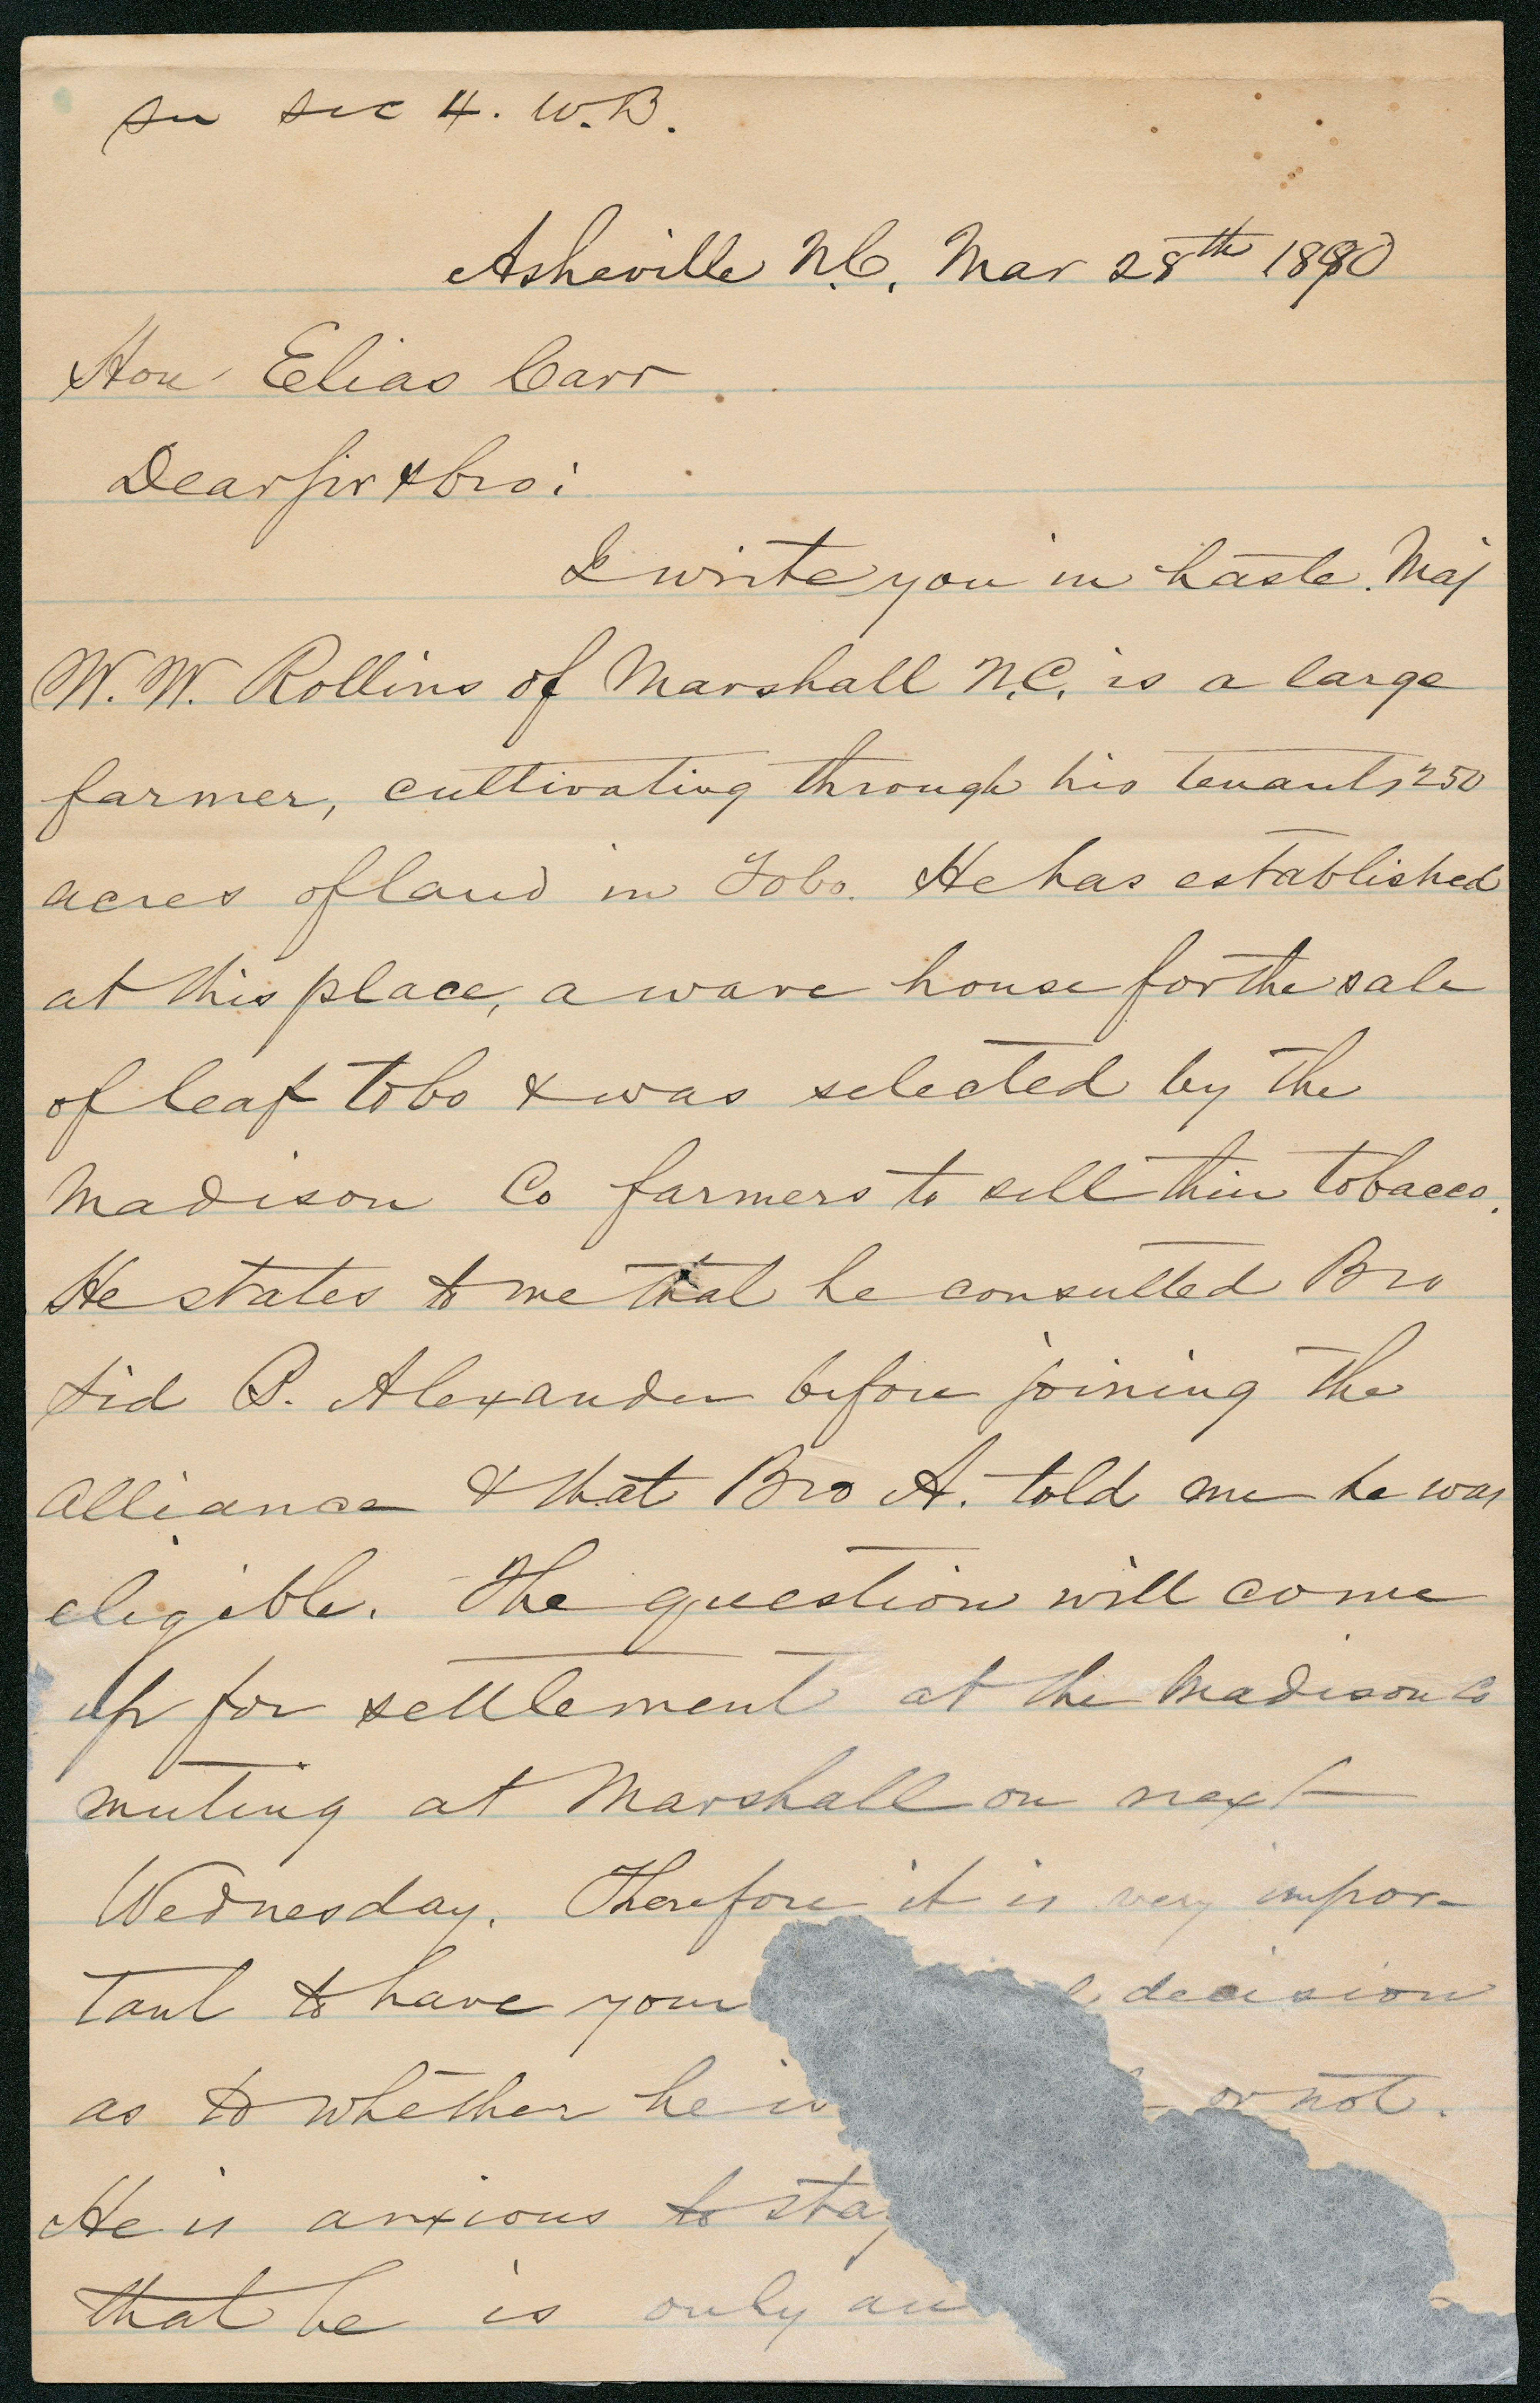 su sec 4. W.B.
Asheville N.C. Mar 28th 1890
Hon Elias Carr
Dear Sir & bro:
I write you in haste. Maj
W. W. Rollins of Marshall N.C. is a large
farmer, cultivating through his tenants 250
acres of land in Tobo. He has established
at this place, a ware house for the sale
of leaf tobo & was selected by the
Madison Co farmers to sell their tobacco.
He states to me that he consulted Bro
Sid B. Alexander before joining the
Alliance & that Bro A. told me he was
eligible. The question will come
up for settlement at the Madison Co
meeting at Marshall on next
Wednesday. Therefore it is very impor-
tant to have your decision
as to whether he is or not.
He is anxious to stay
that he is only an